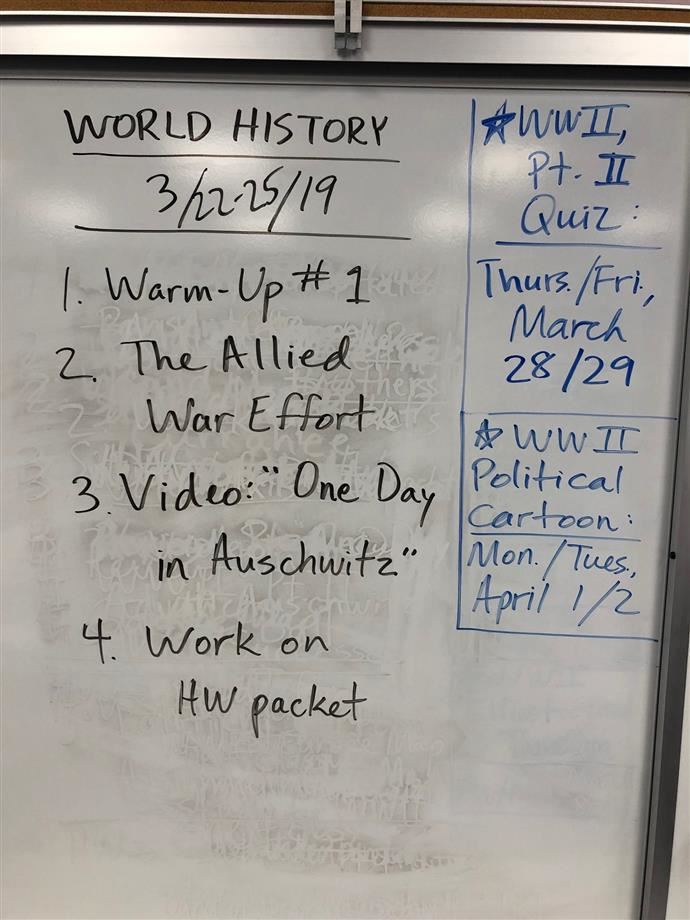 WORLD HISTORY
3/22-25/19
1. Warm-Up # 1
2. The Allied
War Effort
3. Video: "One Day
in Auschwitz"
4. Work on
HW packet
★WWII,
Pt. II
Quiz:
Thurs./Fri.,
March
28/29
★ WWII
Political
Cartoon:
Mon./Tues.,
April 1/2